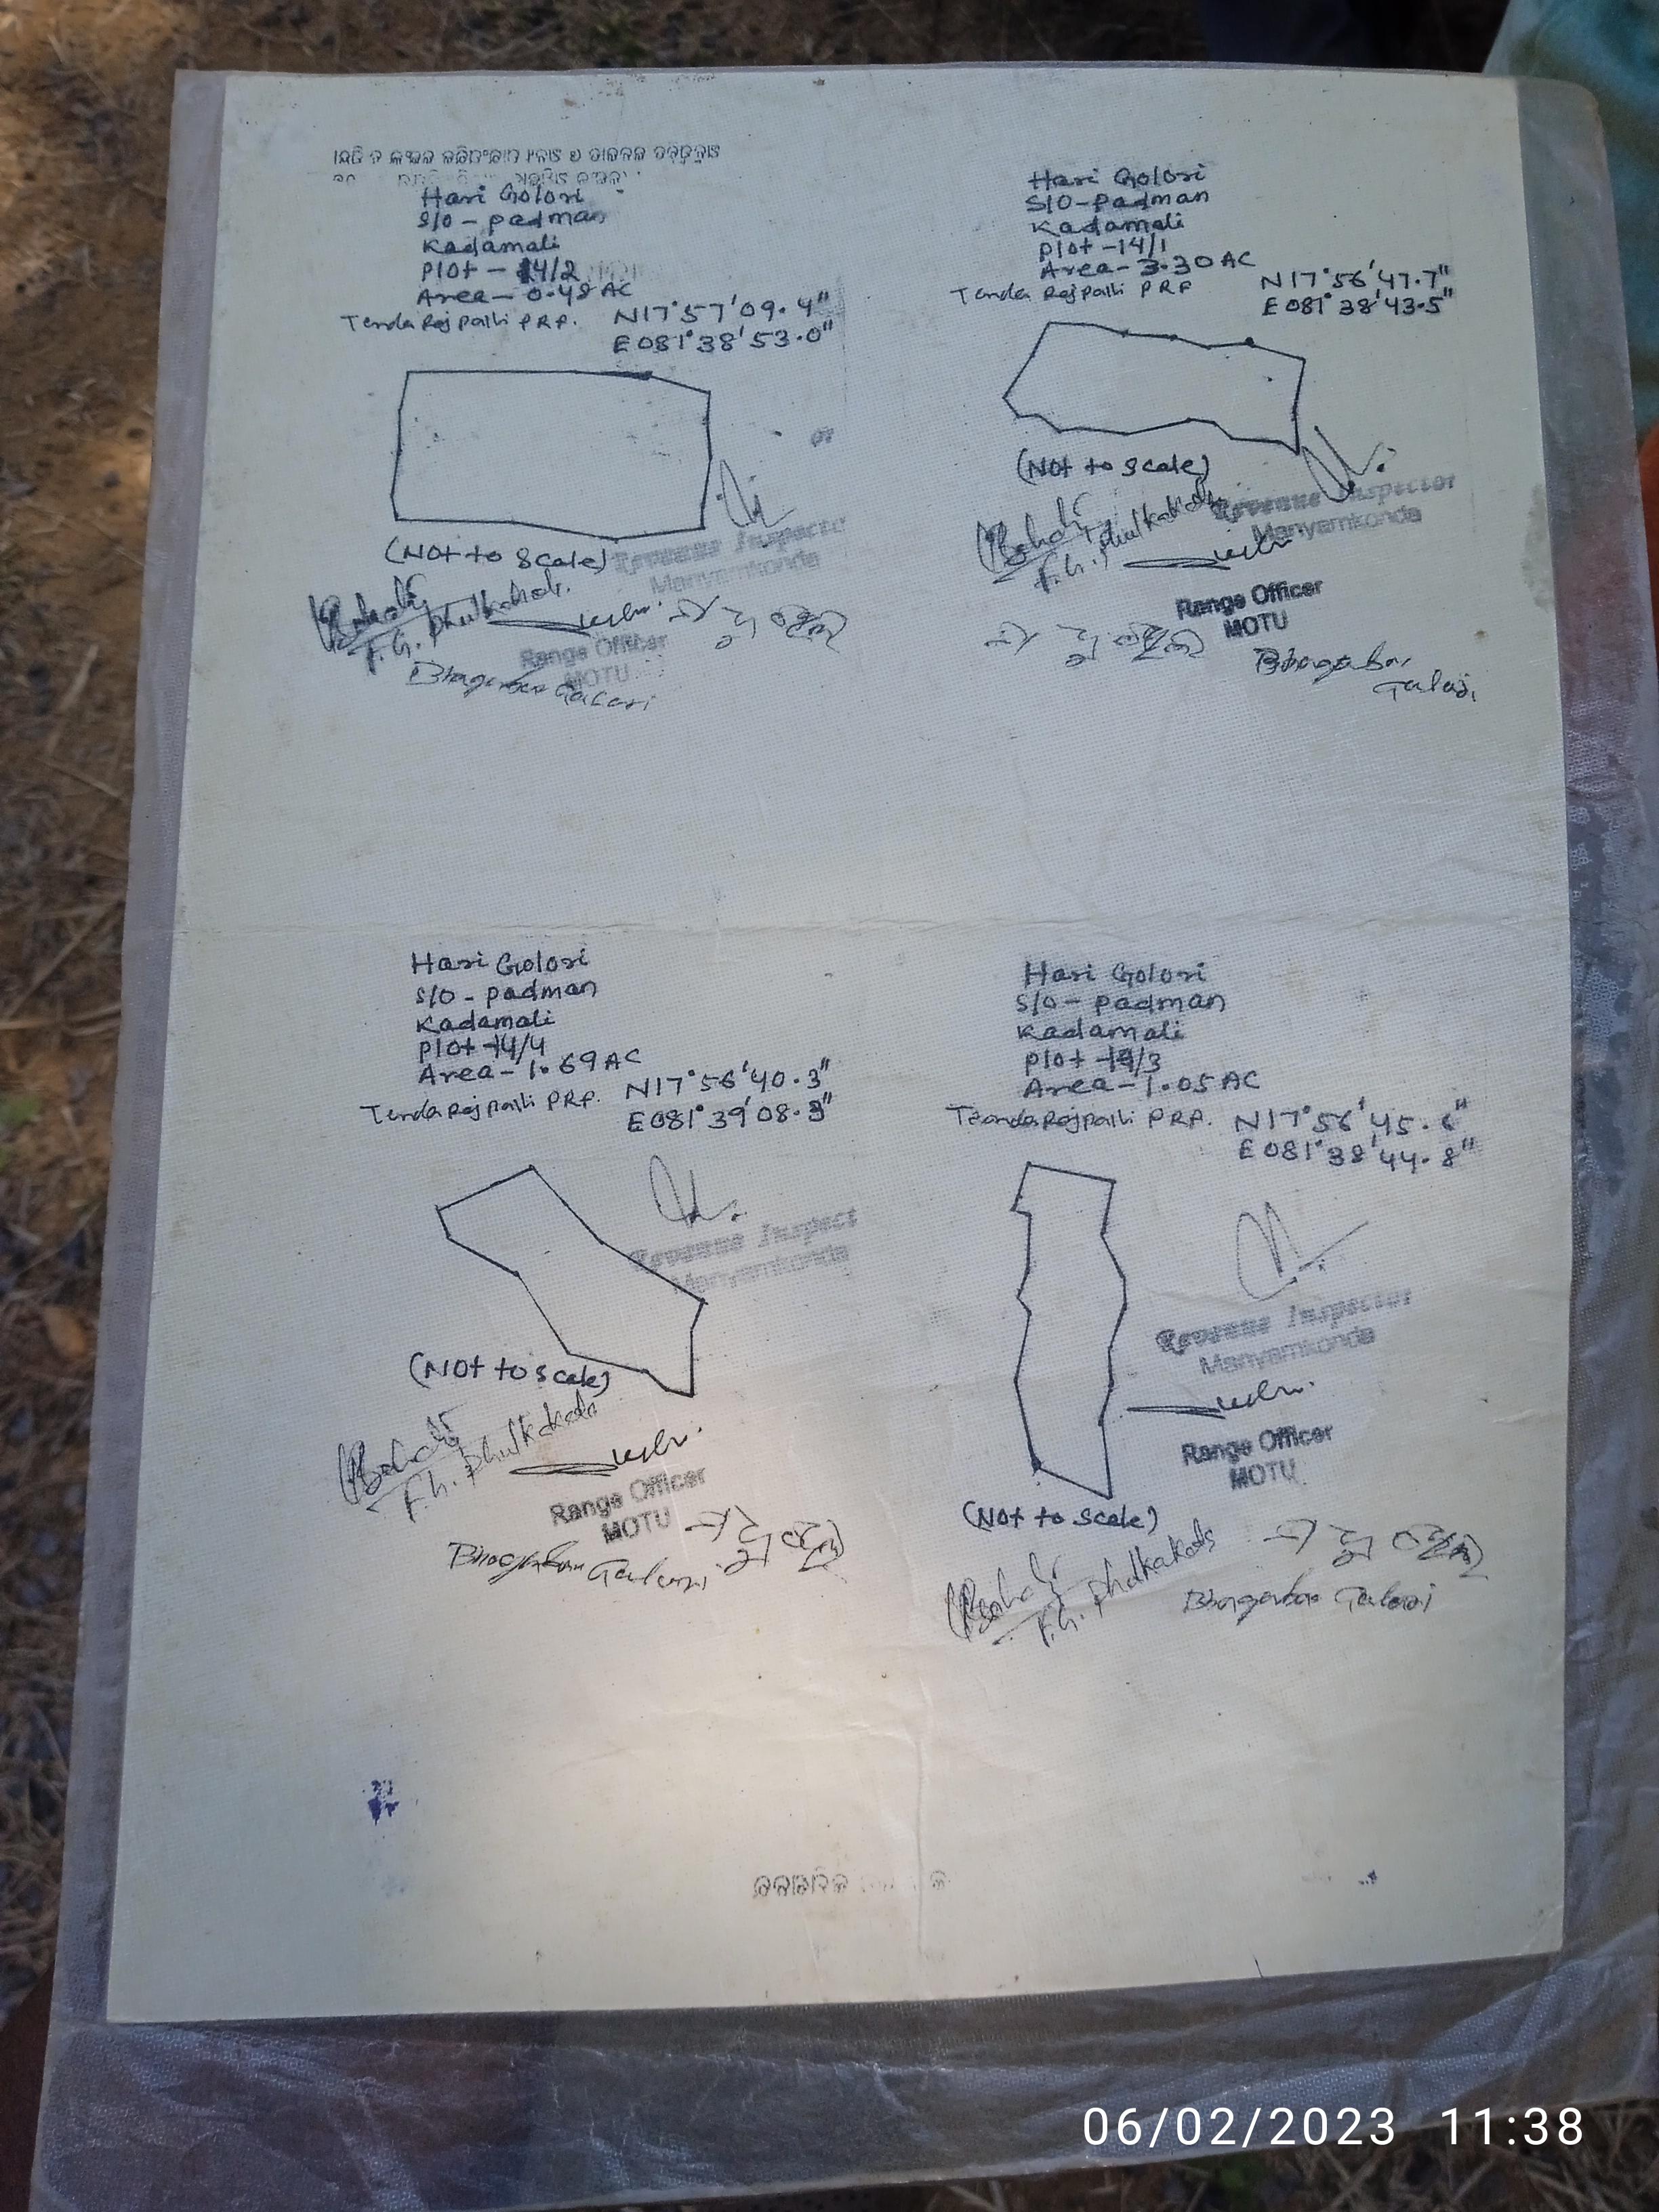 Hari Golori
S/O - padman
Kadamali
Plot - 14/2
Area - 0.48 AC
TendaRajpalli PRF.
N17°57'09.4"
E081°38'53.0"
(Not to Scale)
Revenue Inspector
Manyamkonda
F.G. Phulkakoda
Range Officer
MOTU
Bhagaban Galari
Hari Golori
S/O - padman
Kadamali
Plot - 14/1
Area - 3.30 AC
Tenda Rajpalli PRF
N17°56'47.7"
E081°38'43.5"
(Not to Scale)
Revenue Inspector
Manyamkonda
F.G. Phulkakoda
Range Officer
MOTU
Bhagaban
Galari
Hari Golori
S/O - padman
Kadamali
Plot - 14/4
Area - 1.69 AC
TendaRajpalli PRF.
N17°56'40.3"
E081°39'08.3"
Revenue Inspect
Manyamkonda
(Not to Scale)
F.G. Phulkakoda
Range Officer
MOTU
Bhagaban Galari
Hari Golori
S/O - padman
Kadamali
Plot - 14/3
Area - 1.05 AC
TendaRajpalli PRF.
N17°56'45.6"
E081°38'44.8"
Revenue Inspector
Manyamkonda
Range Officer
MOTU
(Not to Scale)
F.G. Phulkakoda
Bhagaban Galari
06/02/2023 11:38